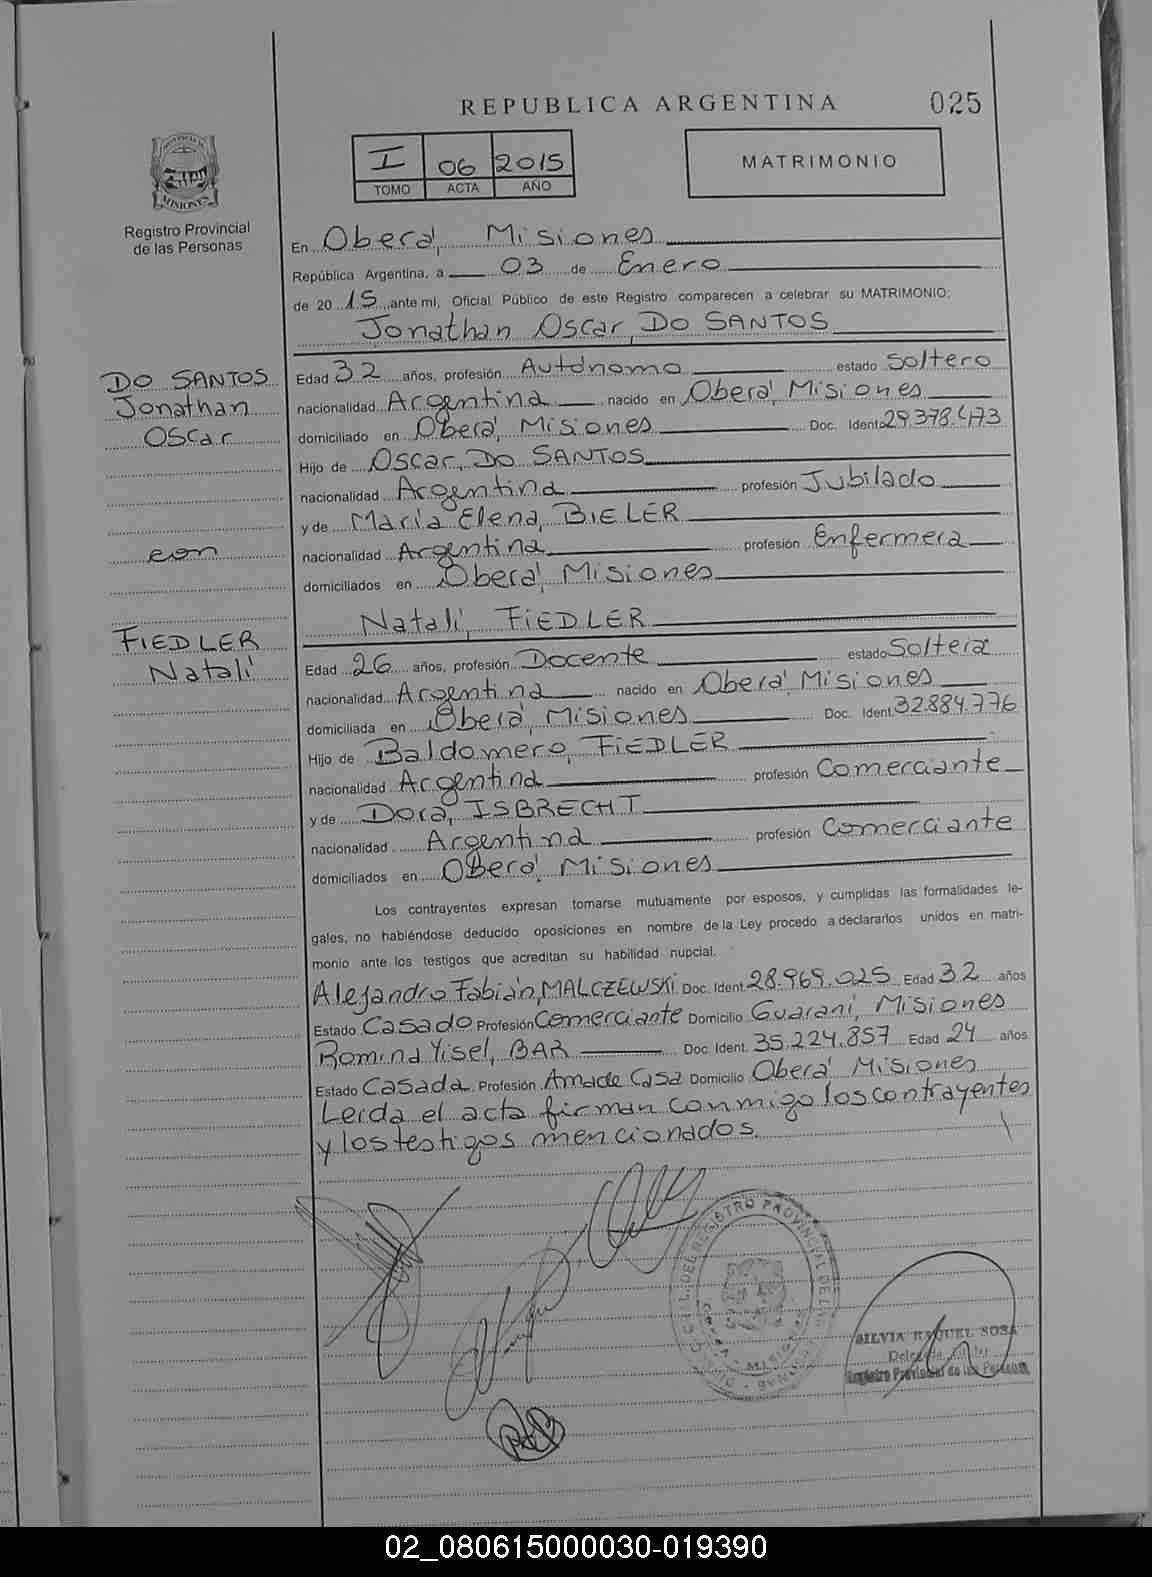 REPUBLICA ARGENTINA 025
I 06 2015
TOMO ACTA AÑO
MATRIMONIO
PROVINCIA DE
MISIONES
Registro Provincial
de las Personas
DO SANTOS
Jonathan
Oscar
con
FIEDLER
Natalí
En Oberá, Misiones
República Argentina, a 03 de Enero
de 2015 ante mi, Oficial Público de este Registro comparecen a celebrar su MATRIMONIO:
Jonathan Oscar, DO SANTOS
Edad 32 años, profesión Autónomo estado Soltero
nacionalidad Argentina nacido en Oberá, Misiones
domiciliado en Oberá, Misiones Doc. Ident. 29.378.473
Hijo de Oscar, DO SANTOS
nacionalidad Argentina profesión Jubilado
y de María Elena, BIELER
nacionalidad Argentina profesión Enfermera
domiciliados en Oberá, Misiones
Natalí, FIEDLER
Edad 26 años, profesión Docente estado Soltera
nacionalidad Argentina nacido en Oberá, Misiones
domiciliada en Oberá, Misiones Doc. Ident. 32.884.776
Hijo de Baldomero, FIEDLER
nacionalidad Argentina profesión Comerciante
y de Dora, ISBRECHT
nacionalidad Argentina profesión Comerciante
domiciliados en Oberá, Misiones
Los contrayentes expresan tomarse mutuamente por esposos, y cumplidas las formalidades le-
gales, no habiéndose deducido oposiciones en nombre de la Ley procedo a declararlos unidos en matri-
monio ante los testigos que acreditan su habilidad nupcial.
Alejandro Fabián, MALCZEWSKI Doc. Ident. 28.969.025 Edad 32 años
Estado Casado Profesión Comerciante Domicilio Guaraní, Misiones
Romina Yisel, BAR Doc. Ident. 35.224.857 Edad 24 años
Estado Casada Profesión Ama de Casa Domicilio Oberá Misiones
Leída el acta firman conmigo los contrayentes
y los testigos mencionados.
DEL REGISTRO PROVINCIAL DE LAS
MISIONES
SILVIA RAQUEL SOSA
Delegada
Registro Provincial de las Personas
02_080615000030-019390